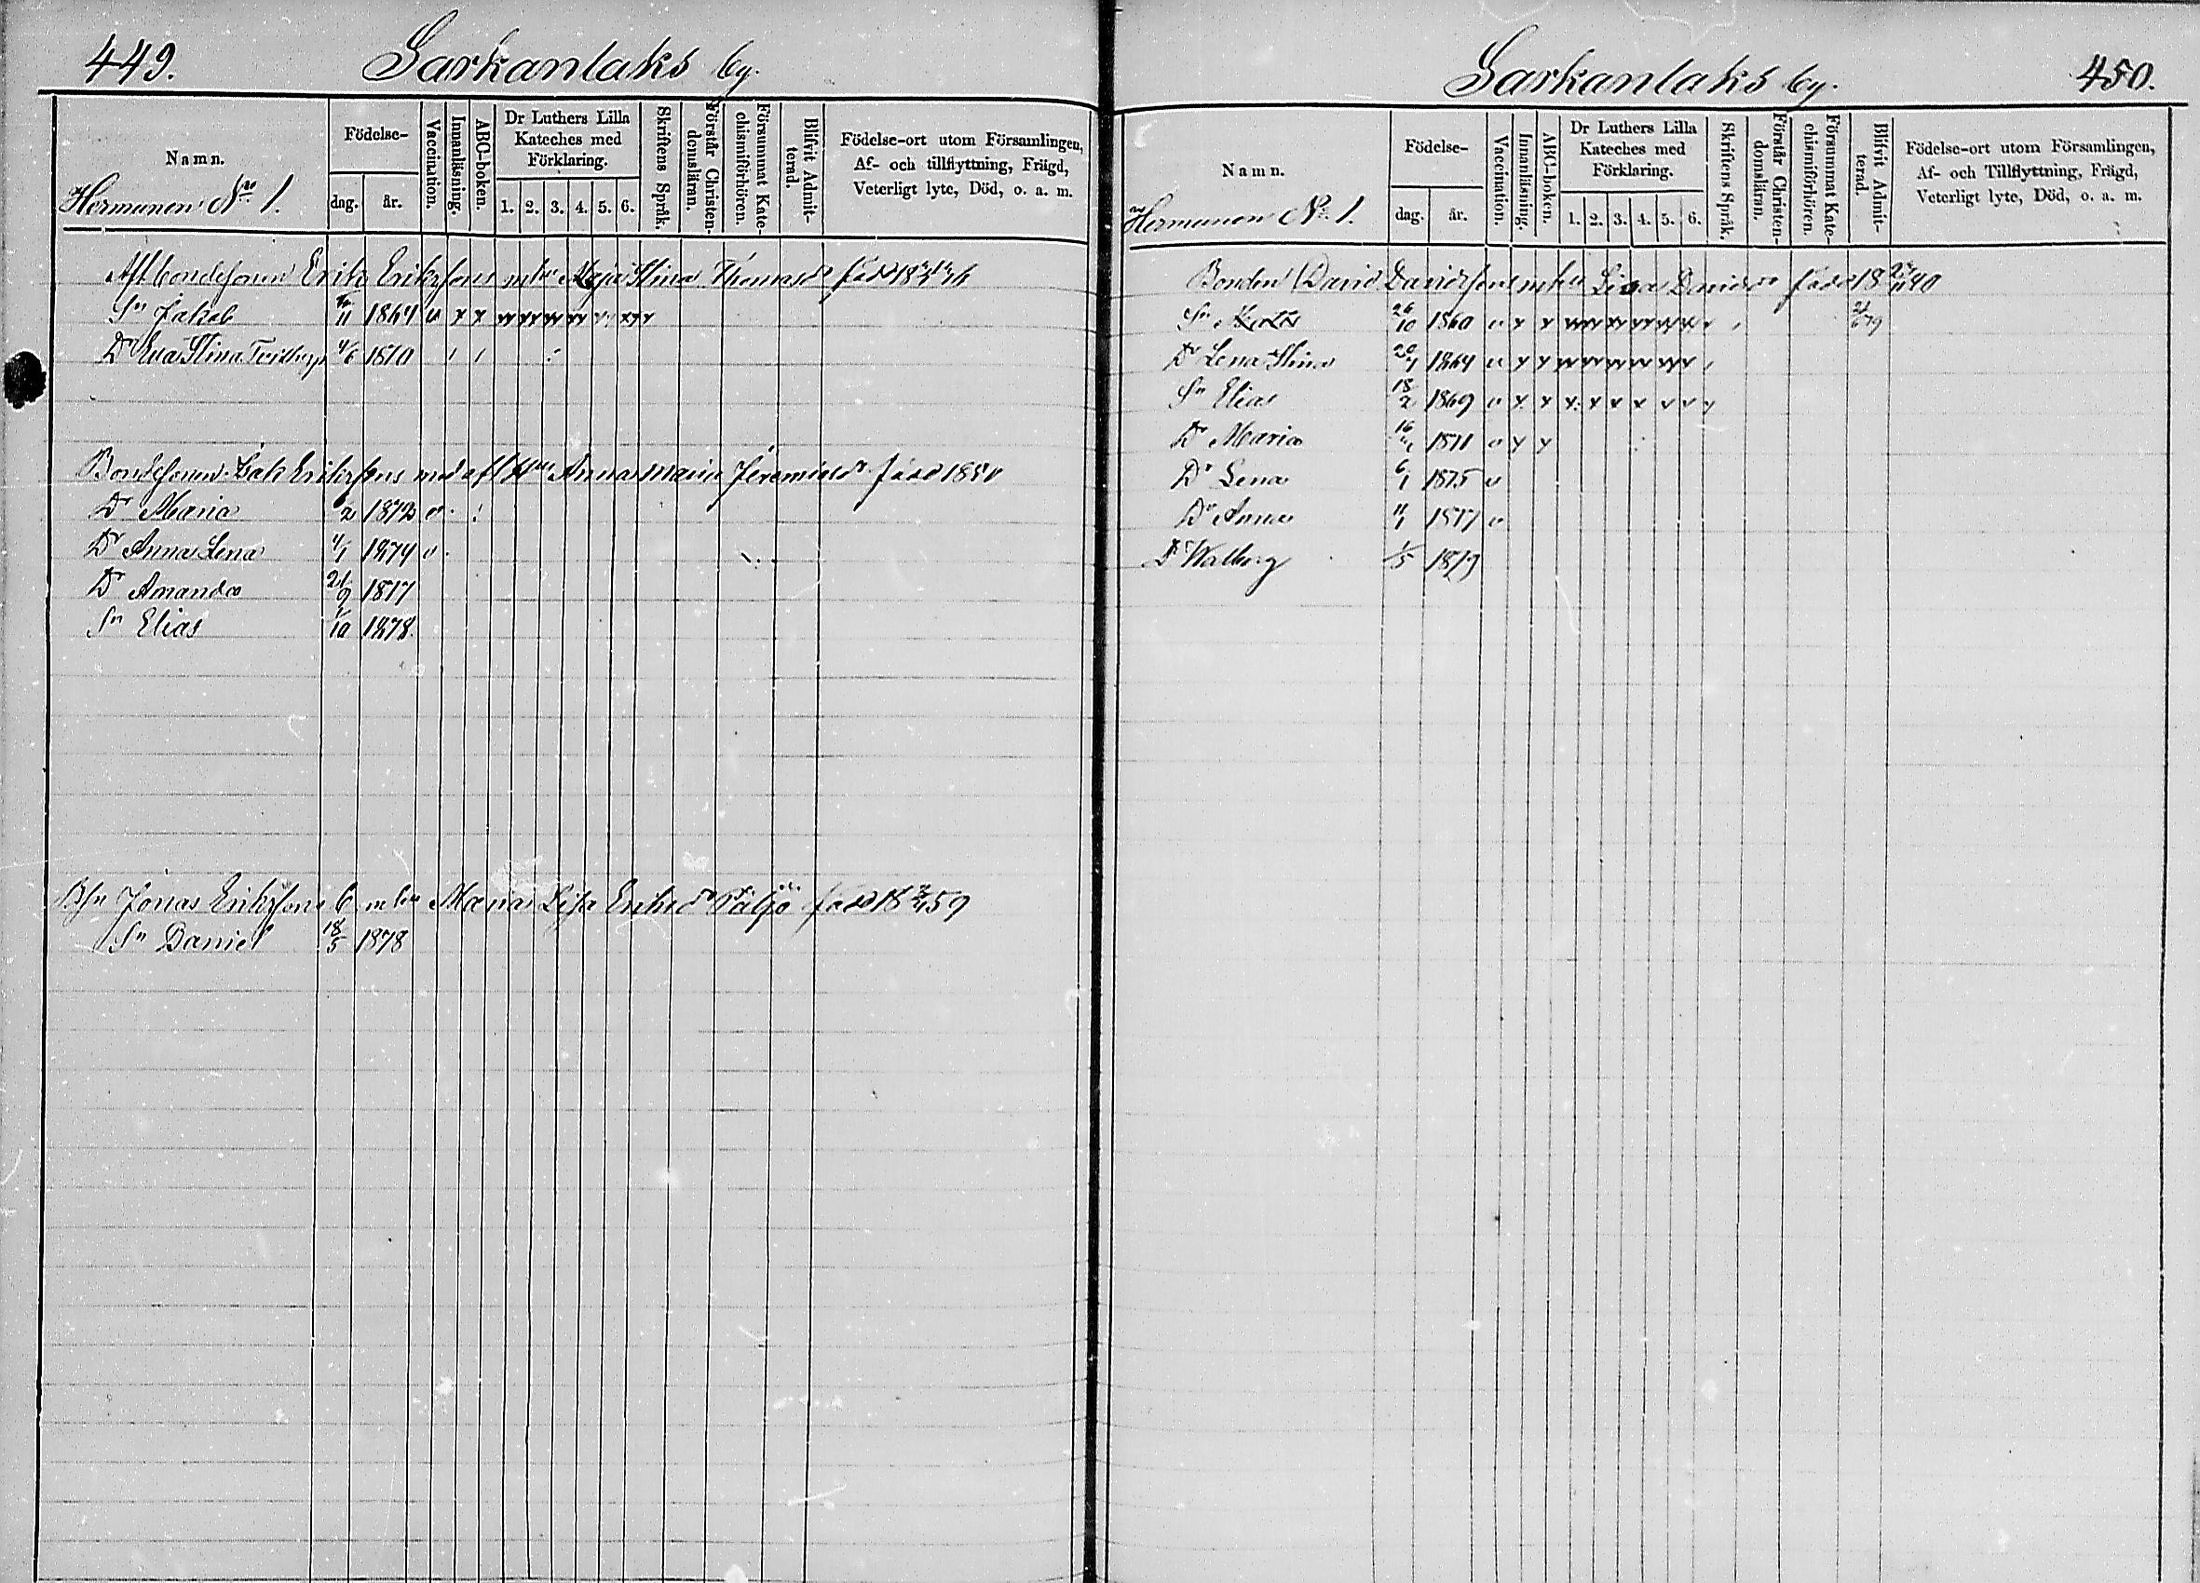 449. Sarkanlaks by.
Namn. Födelse- dag. år. Vaccination. Innanläsning. ABC-boken. Dr Luthers Lilla Kateches med Förklaring. 1. 2. 3. 4. 5. 6. Skriftens Språk. Förstår Christendomsläran. Försummat Katechismiförhören. Blifvit Admitterad. Födelse-ort utom Församlingen, Af- och tillflyttning, Frägd, Veterligt lyte, Död, o. a. m.
Hermunen No 1.
Erik Erikssons Maja Stina Thomasdr född
Sn Jakob 1864 v x x
Dr Eva Stina 4/6 1870
Bondesonen Isak Erikssons Anna Maria Jeremiædr född 1850
Dr Maria 1872 v
Dr Anna Lena 4/1 1874 v
Dr Amanda 21/9 1877
Sn Elias 1/10 1878.
Bsn Jonas Erikssons Maria Lisa född 18 59
Sn Daniel 18/5 1878
Sarkanlaks by. 450.
Namn. Födelse- dag. år. Vaccination. Innanläsning. ABC-boken. Dr Luthers Lilla Kateches med Förklaring. 1. 2. 3. 4. 5. 6. Skriftens Språk. Förstår Christendomsläran. Försummat Katechismiförhören. Blifvit Admitterad. Födelse-ort utom Församlingen, Af- och Tillflyttning, Frägd, Veterligt lyte, Död, o. a. m.
Hermunen No 1.
Bonden David Davidssons Davidsdr född 18 40
Sn 26/10 1860 v x x
Dr Lena Stina 1864 v x x
Sn Elias 18/2 1869 v x x x x x x v v
Dr Maria 1871 v x x
Dr Lena 6/1 1875 v
Dr Anna 11/1 1877 v
Dr Walborg 1/5 1879